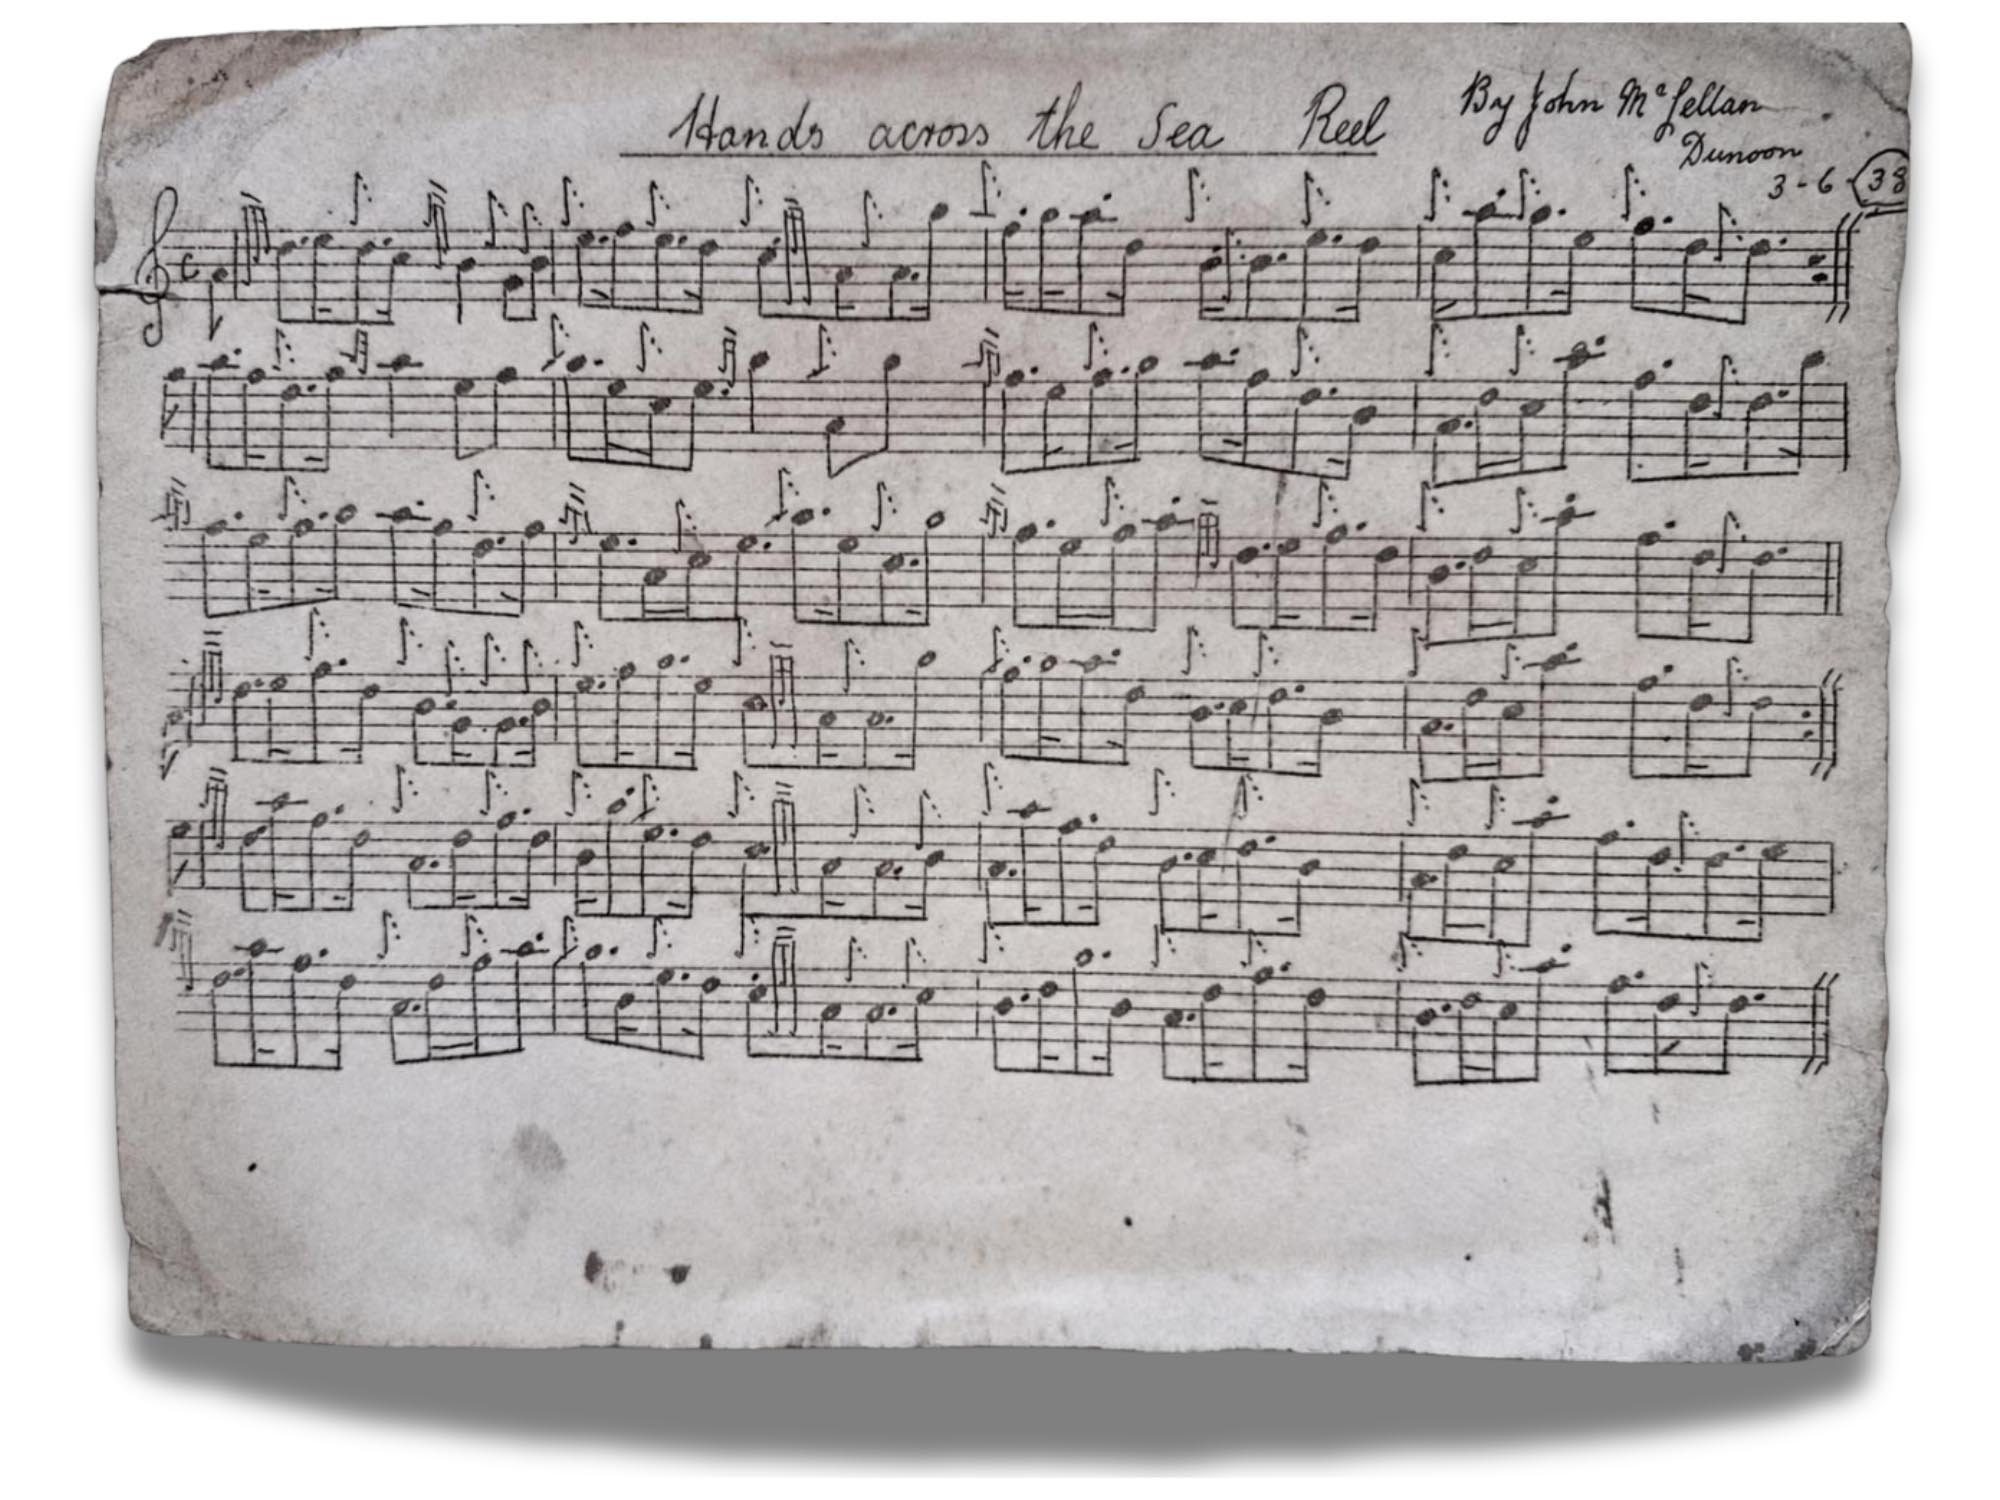 Hands across the Sea Reel
By John McLellan
Dunoon
3-6-38
C